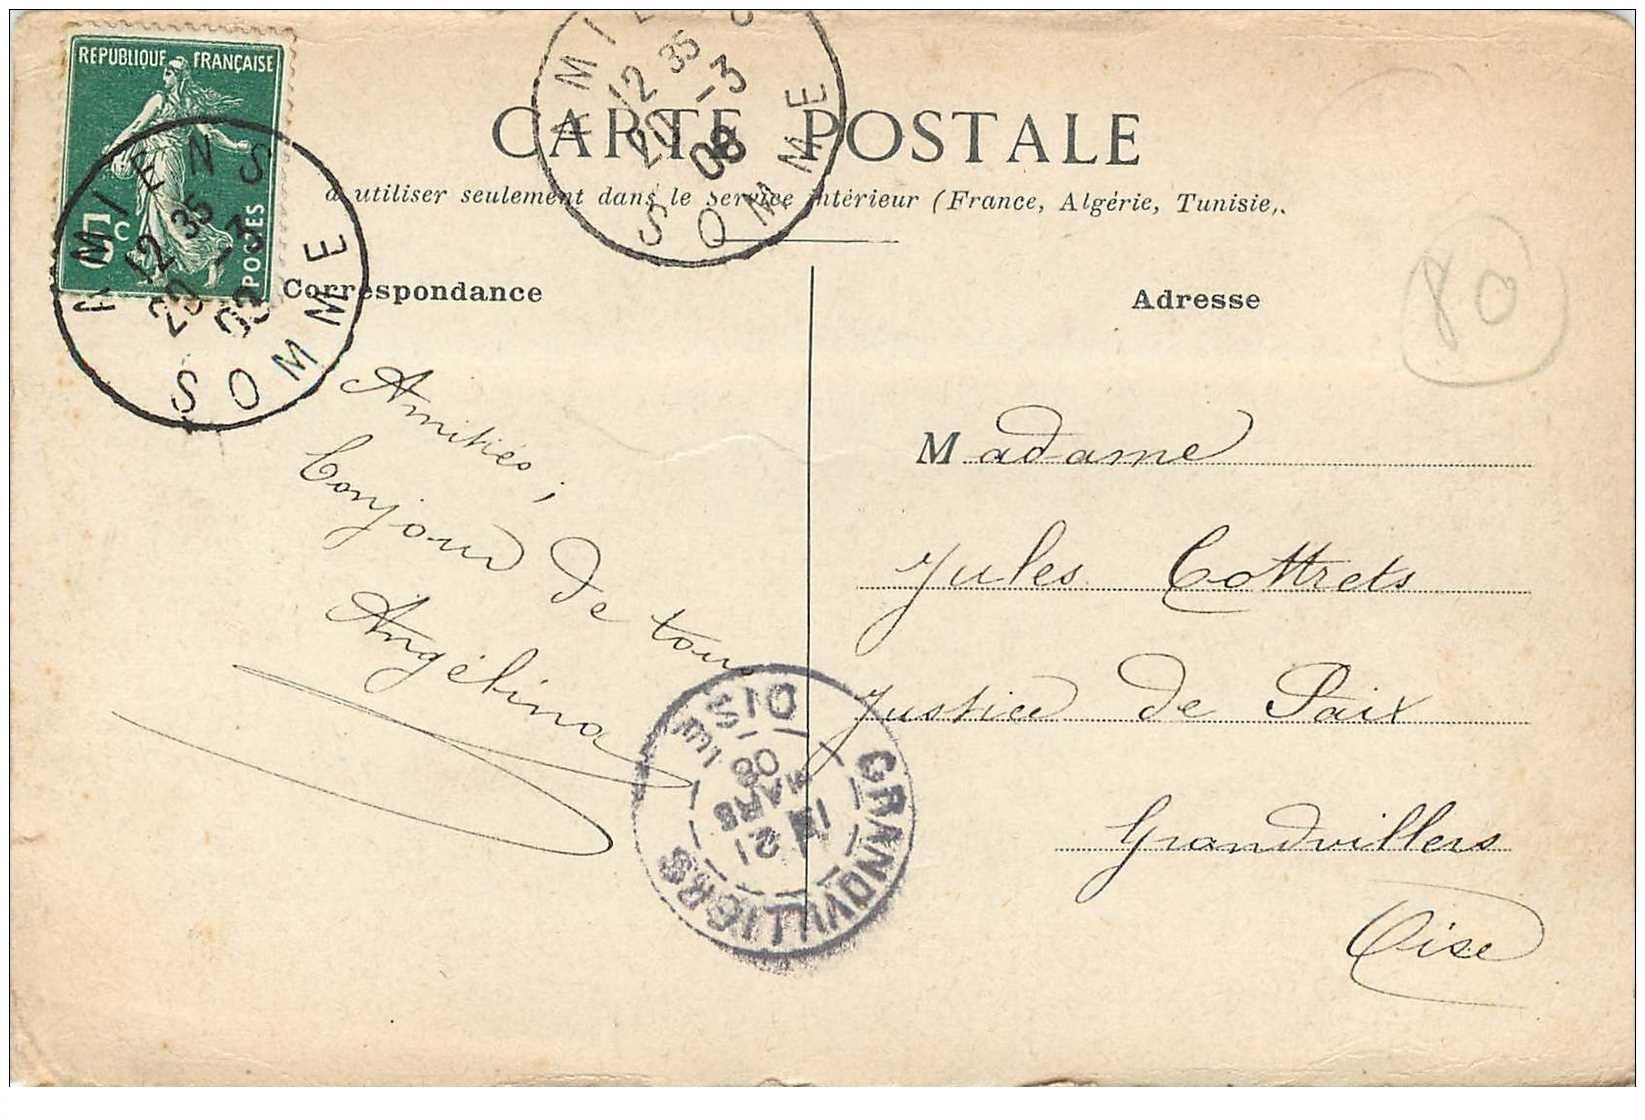 REPUBLIQUE FRANÇAISE
5c
POSTES
AMIENS
12 35
20 -3
08
SOMME
AMIENS
12 35
20 -3
08
SOMME
CARTE POSTALE
à utiliser seulement dans le Service intérieur (France, Algérie, Tunisie,.
Correspondance
Adresse
80
Amitiés,
Bonjour de tous
Angélina
Madame
Jules Cottrets
Justice de Paix
Grandvillers
Oise
GRANDVILLIERS
21
MARS
08
OISE